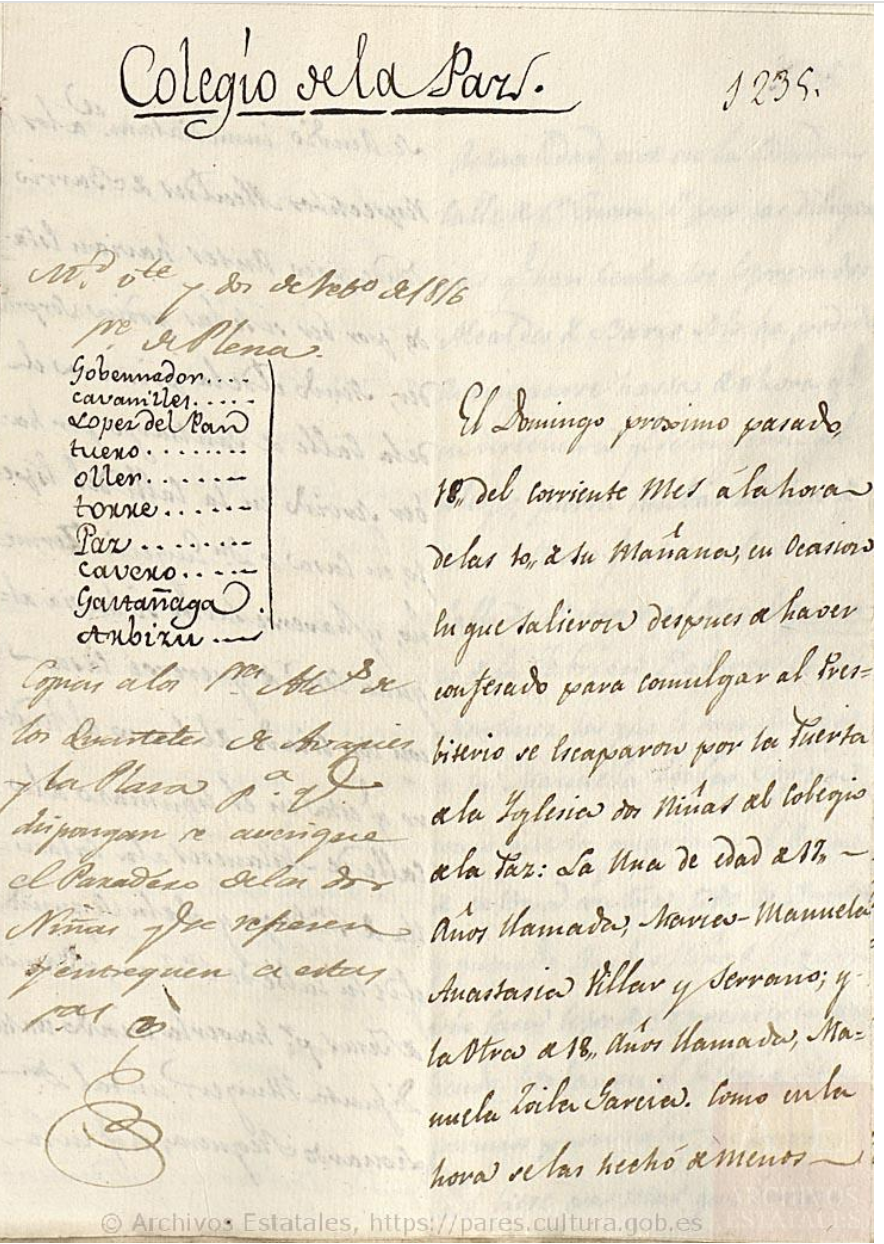 Colegio de la Paz.
1235.
M.d v.te y dos de Febo de 1816
pe. de Plena.
Gobernador....
Cavanilles.....
Lopez del Pan
tuero........
oller.......
torre......
Paz........
Cavero.....
Gastañaga
Arbizu...
Copias a los
los Quarteles de Avapies
y la Plaza p.a q.e
dispongan se averigue
el Paradero de las dos
Niñas y se
y entreguen a estas
El Domingo proximo pasado,
18,, del corriente Mes á la hora
de las 10,, de su Mañana, en Ocasion
en que salieron despues de haver
confesado para comulgar al Pres=
biterio se escaparon por la Puerta
de la Yglesia dos Niñas del Colegio
de la Paz: La Una de edad de 17,, —
Años llamada, Maria-Manuela
Anastasia Villar y Serrano; y
la Otra de 18,, Años llamada, Ma=
nuela Zoila Garcia. Como en la
hora se las hechó de menos —
© Archivos Estatales, https://pares.cultura.gob.es
ARCHIVOS
ESTATALES